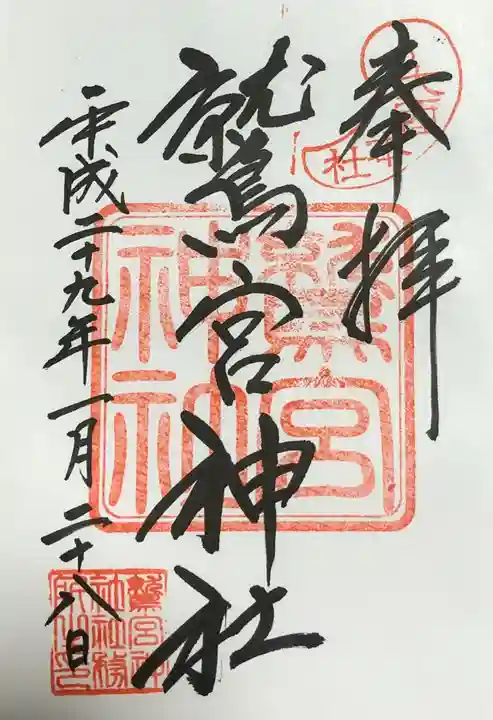 奉拝
鷲宮神社
平成二十九年一月二十八日
鷲宮
神社
鷲宮神
社社務
所之印